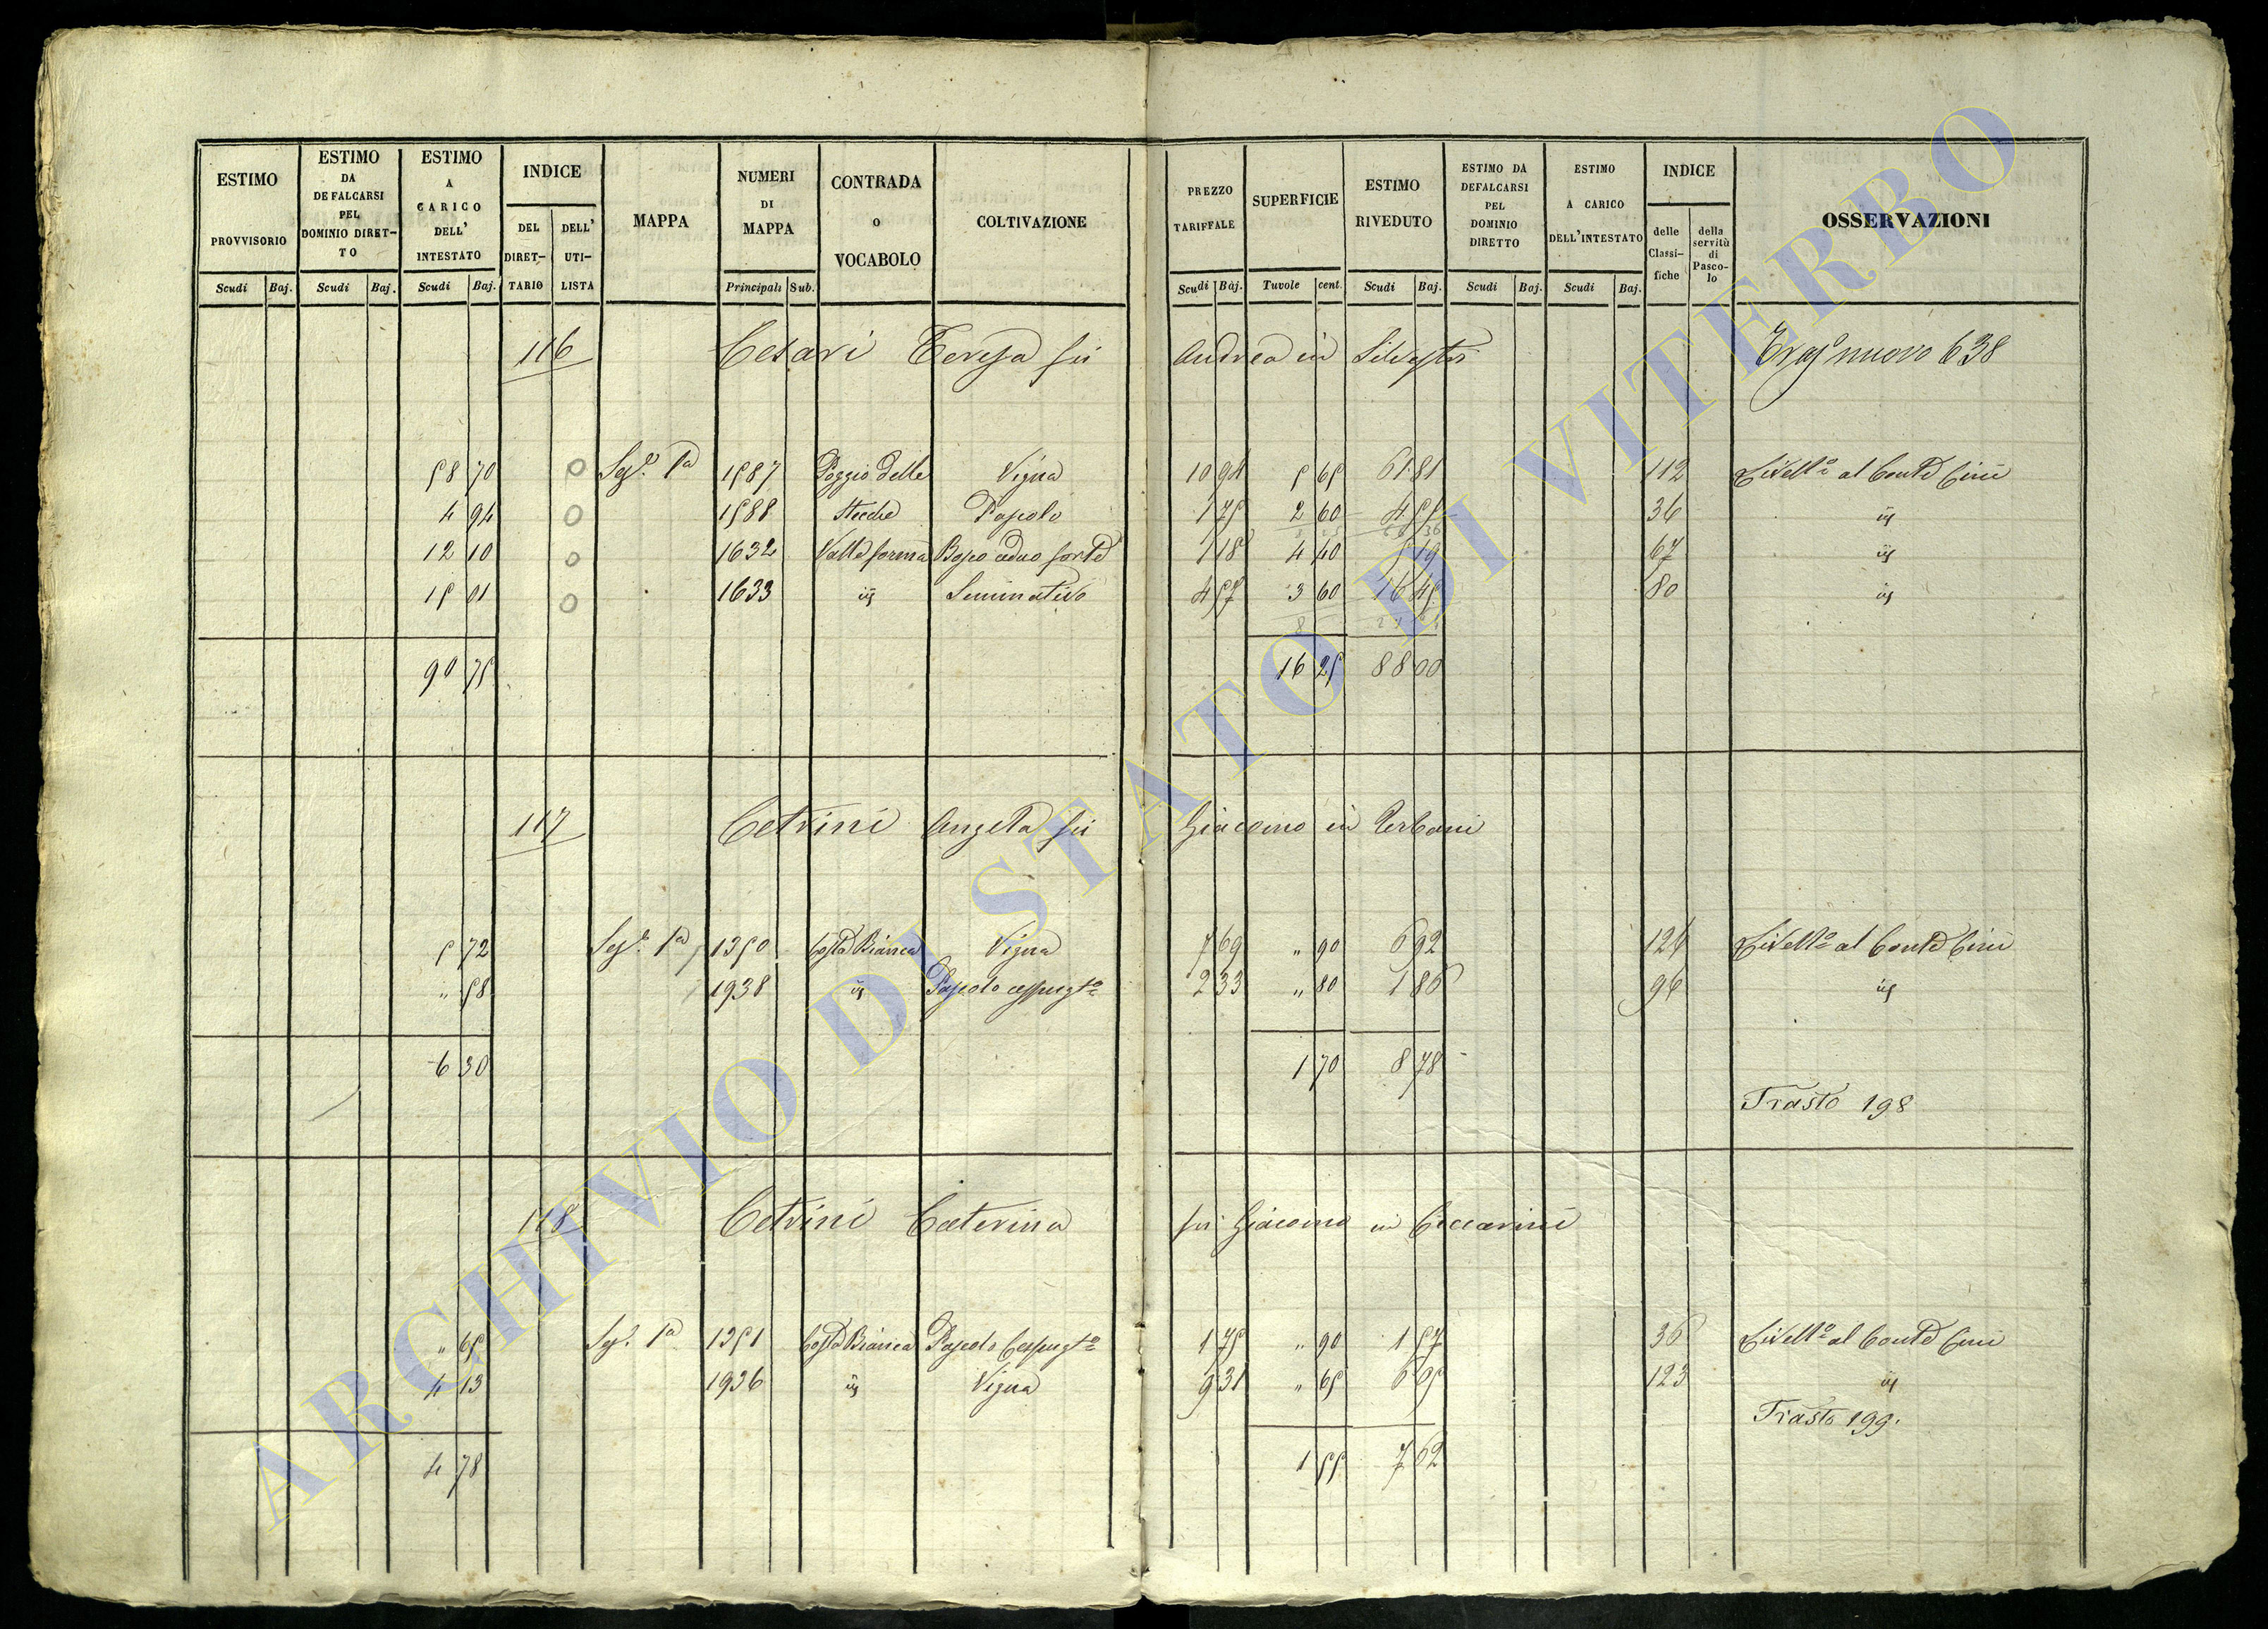 ESTIMO PROVVISORIO
ESTIMO DA DEFALCARSI PEL DOMINIO DIRET-TO
ESTIMO A CARICO DELL' INTESTATO
INDICE
DEL DIRET-TARIO
DELL' UTI-LISTA
MAPPA
NUMERI DI MAPPA
CONTRADA O VOCABOLO
COLTIVAZIONE
PREZZO TARIFFALE
SUPERFICIE
ESTIMO RIVEDUTO
ESTIMO DA DEFALCARSI PEL DOMINIO DIRETTO
ESTIMO A CARICO DELL'INTESTATO
INDICE
delle Classi-fiche
della servitù di Pasco-lo
OSSERVAZIONI
Scudi Baj. Scudi Baj. Scudi Baj. Principali Sub. Scudi Baj. Tavole cent. Scudi Baj. Scudi Baj. Scudi Baj.
116 Cesari Teresa fu Andrea in Silvestri
nuovo 638
58 70 O Sez.e 1a 1587 Poggio delle Vigna 10 94 5 65 61 81 112 Livell.o al Conte Cini
4 94 O 1588 Stecche Pascolo 1 75 2 60 4 55 36 iij
12 10 O 1632 Valle forma Bosco ceduo forte 1 18 4 40 5 19 67 iij
15 01 O 1633 iij Seminativo 4 57 3 60 16 45 80 iij
90 75 16 25 88 00
117 Cetrini Angela fu Giacomo in Urbani
5 72 Sez.e 1a 1350 Costa Bianca Vigna 7 69 " 90 6 92 126 Livell.o al Conte Cini
" 58 1938 iij Pascolo cespugt.o 2 33 " 80 1 86 96 iij
6 30 1 70 8 78
Trasto 198
118 Cetrini Caterina fu Giacomo in Ciccarini
" 65 Sez. 1a 1351 Costa Bianca Pascolo Cespugt.o 1 75 " 90 1 57 36 Livell.o al Conte Cini
4 13 1936 iij Vigna 9 31 " 65 6 05 123 iij
Trasto 199.
4 78 1 55 7 62
ARCHIVIO DI STATO DI VITERBO